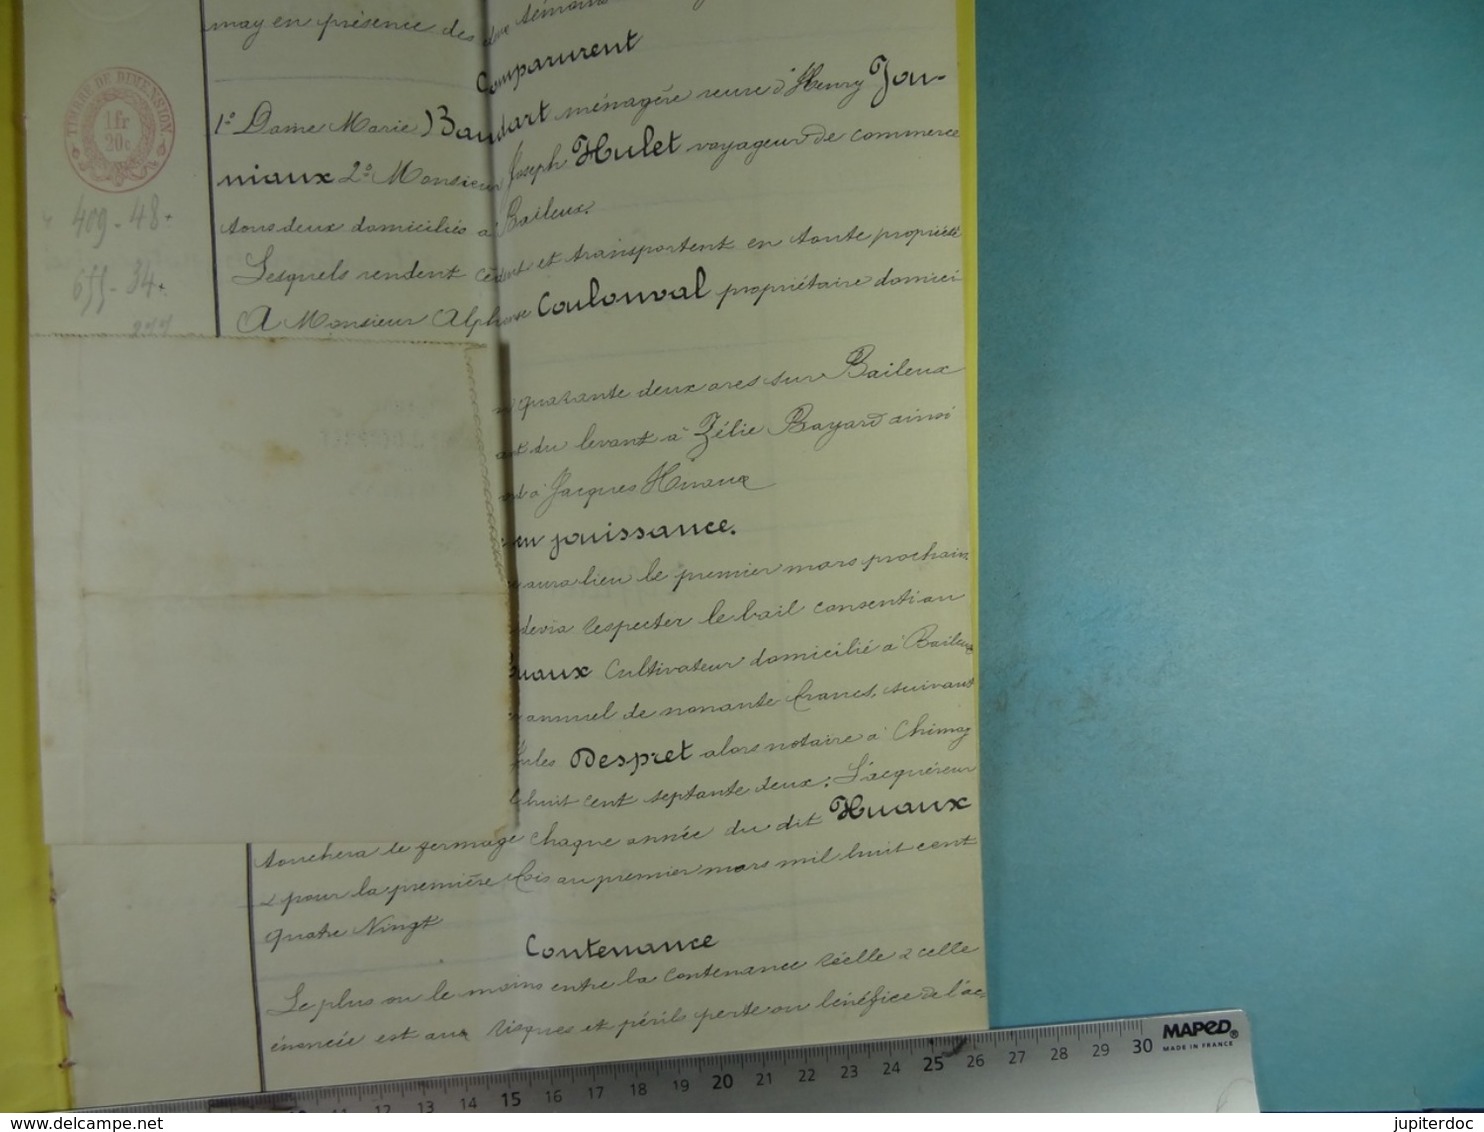 may en présence des deux témoins
Comparurent
TIMBRE DE DIMENSION
1 fr
20 c
1º Dame Marie Baudart ménagère veuve d'Henry Jou-
niaux 2º Monsieur Joseph Hulet voyageur de commerce
tous deux domiciliés à Baileux.
409-48
Lesquels vendent cèdent et transportent en toute propriété
655-34
A Monsieur Alphonse Coulonval propriétaire domici
277
quarante deux ares sur Baileux
du levant à Zélie Bayard ainsi
à Jacques Huaux
en jouissance.
aura lieu le premier mars prochain
devra respecter le bail consenti au
uaux Cultivateur domicilié à Baileux
annuel de nonante francs, suivant
Jules Despret alors notaire à Chimay
huit cent septante deux. L'acquéreur
touchera le fermage chaque année du dit Huaux
& pour la première fois au premier mars mil huit cent
quatre Vingt
Contenance
Le plus ou le moins entre la contenance réelle & celle
énoncée est aux risques et périls perte ou bénéfice de l'ac
11 12 13 14 15 16 17 18 19 20 21 22 23 24 25 26 27 28 29 30
MAPED®
MADE IN FRANCE
www.delcampe.net
jupiterdoc